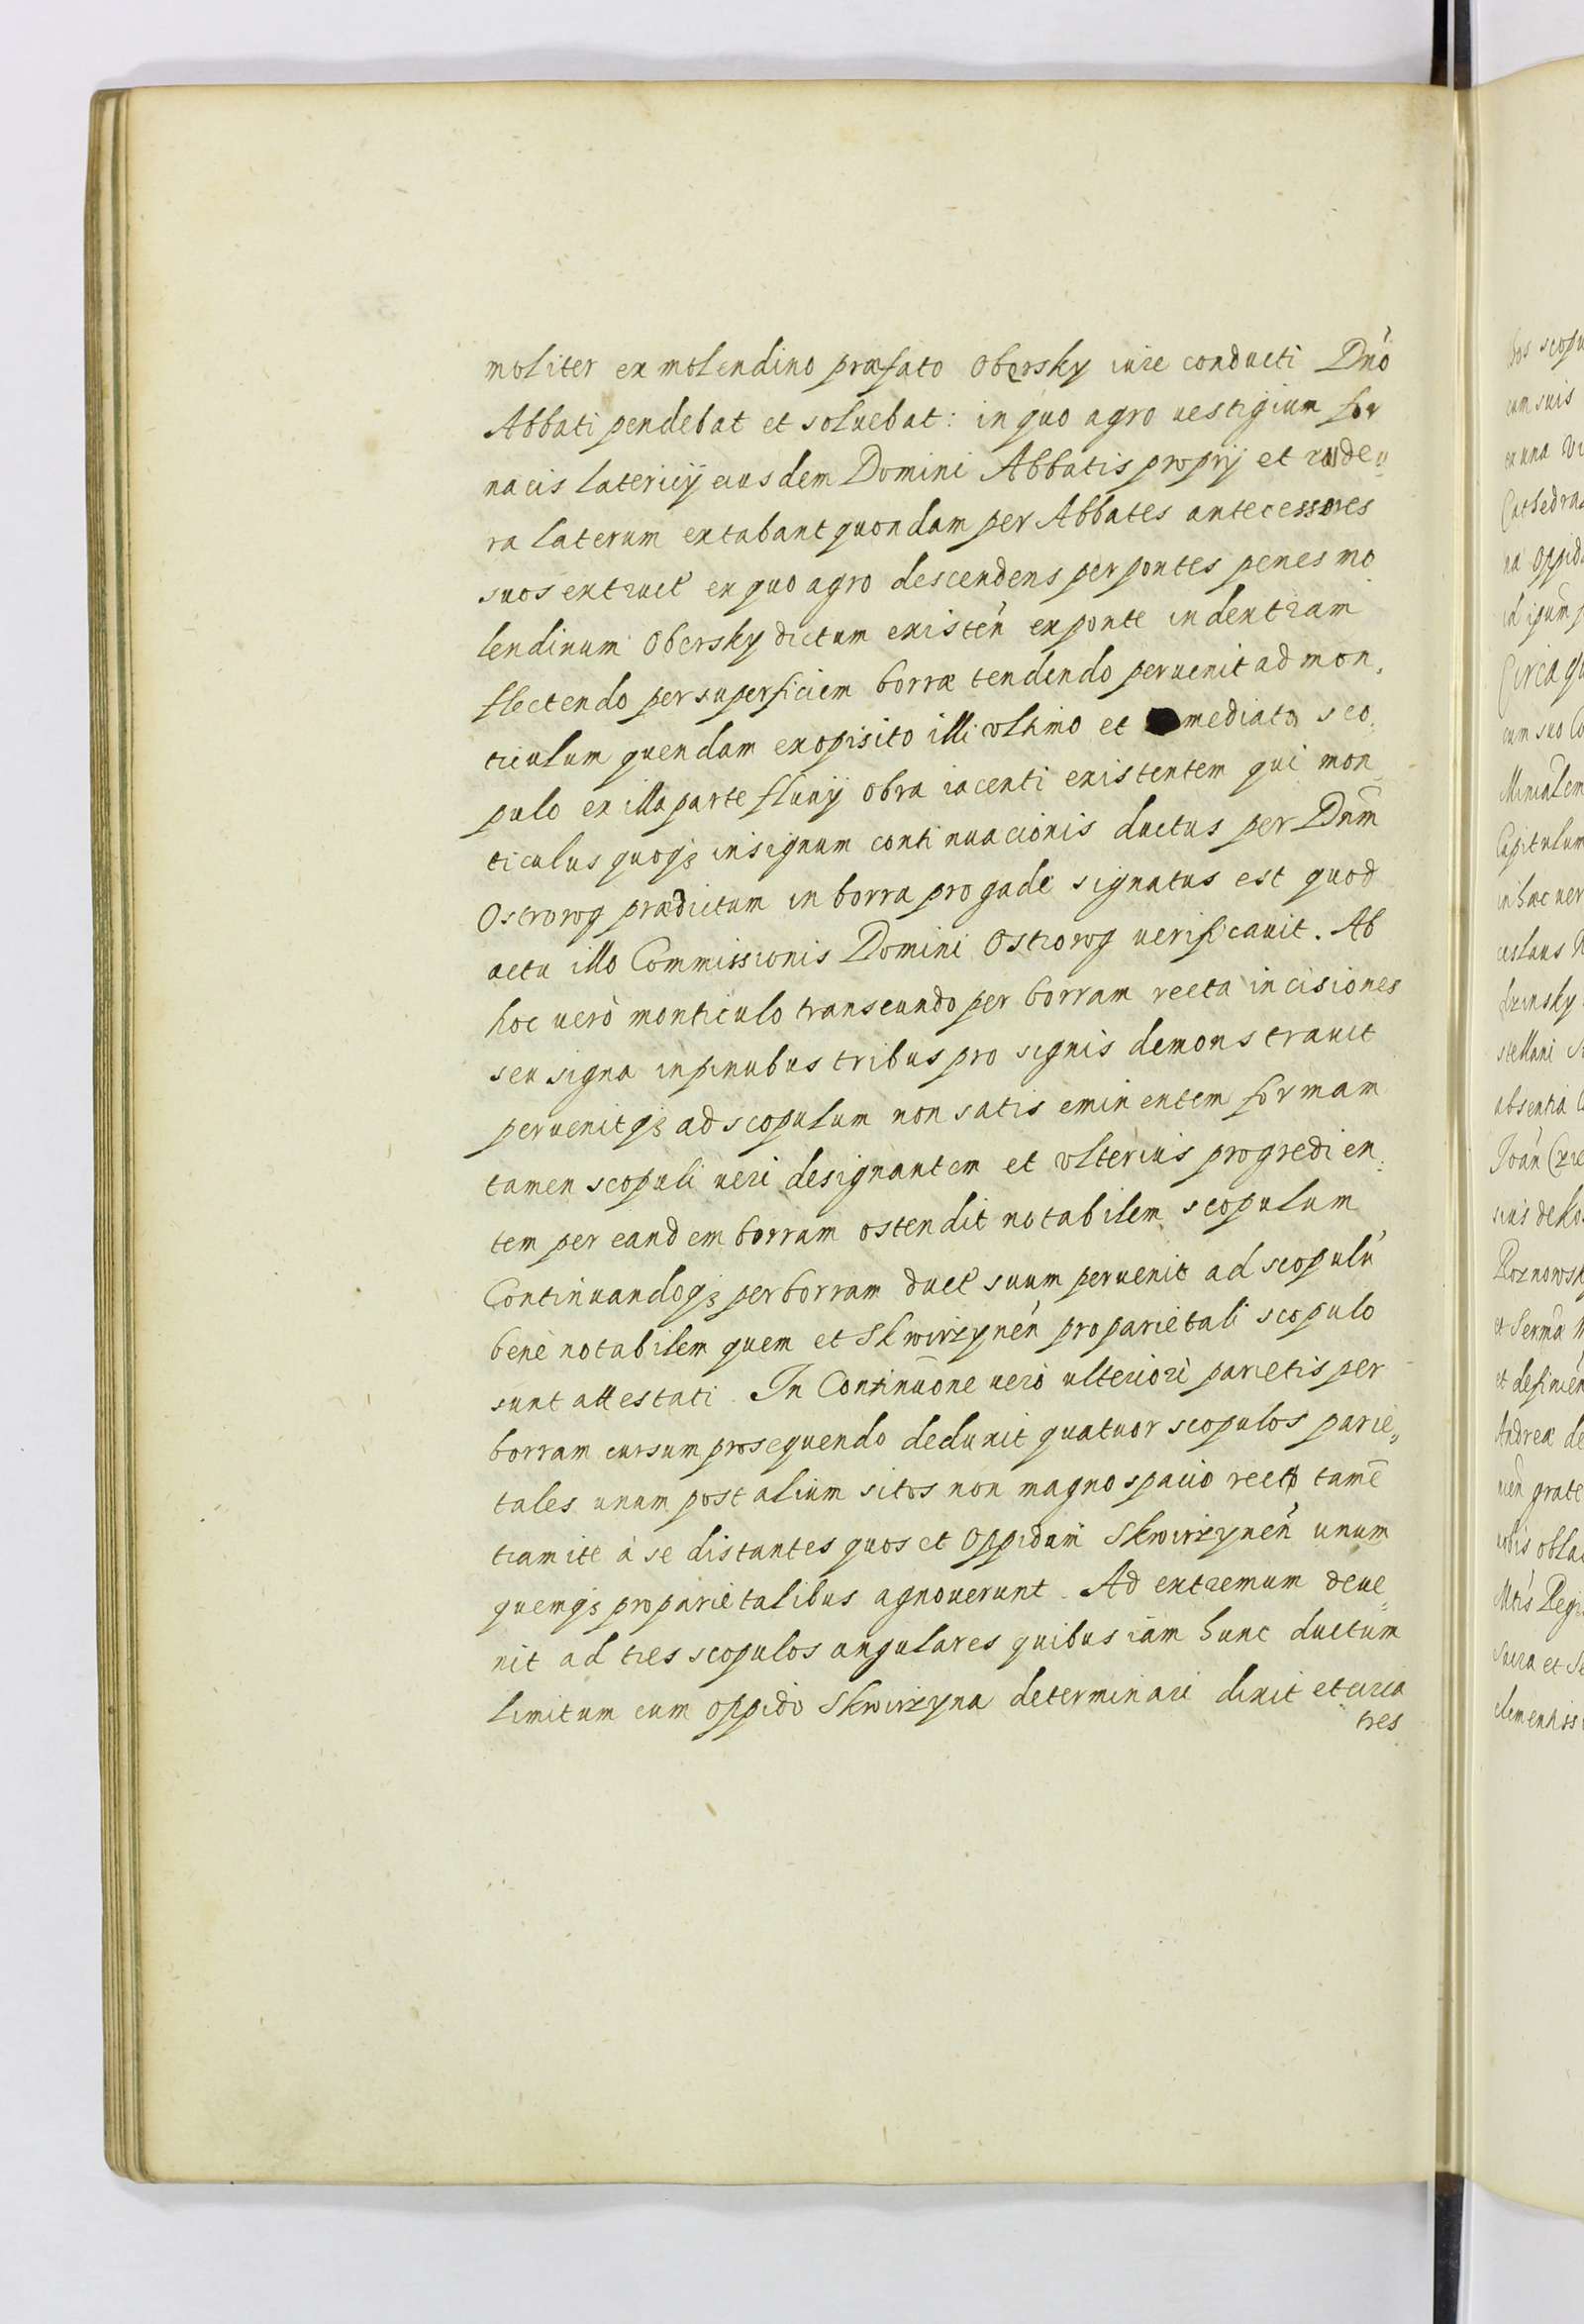 moliter ex molendino præfato Obersky iure conducti Dnō
Abbati pendebat et soluebat: in quo agro uestigium for
nacis latericij eiusdem Domini Abbatis proprij et rude„
ra laterum extabant quondam per Abbates antecessores
suos extruct ex quo agro descendens per pontes penes mo
lendinum Obersky dictum existen̄ ex ponte in dextram
flectendo per superficiem borræ tendendo peruenit ad mon„
ticulum quendam exopisito illi vltimo et mediato sco„
pulo ex illa parte fluuij Obra iacenti existentem qui mon„
ticulus quoqȝ insignum continuacionis ductus per Dnm̄
Ostrorog prædictum in borra pro gade signatus est quod
actu illo Commissionis Domini Ostrorog uerificauit. Ab
hoc uerò monticulo transeundo per borram recta incisiones
seu signa in pinubus tribus pro signis demonstrauit
peruenitqȝ ad scopulum non satis eminentem formam
tamen scopuli ueri designantem et vlterius progredien„
tem per eandem borram ostendit notabilem scopulum
Continuandoqȝ per borram duct suum peruenit ad scopulū
benè notabilem quem et Skwirzynen̄ pro parietali scopulo
sunt attestati. In Continuōne uerò ulteriori parietis per
borram cursum prosequendo deduxit quatuor scopulos parie„
tales unum post alium sitos non magno spacio recto tamē
tramite à se distantes quos et Oppidani Skwirzynen̄ unum
quemqȝ pro parietalibus agnouerunt. Ad extremum deue„
nit ad tres scopulos angulares quibus iam hunc ductum
limitum cum oppido Skwirzyna determinari dixit et circa
tres
bos scopu
cum suis
ex una
Cathedra
na Oppid
Circa qu
cum suo Co
Capitulum
in hac uer
stellani
absentia
Joan̄
sius de Ko
Roznowsk
et Serma
et definien
Andreæ de
grate
obla
Mtis Regi
Sacra et Se
clementiss